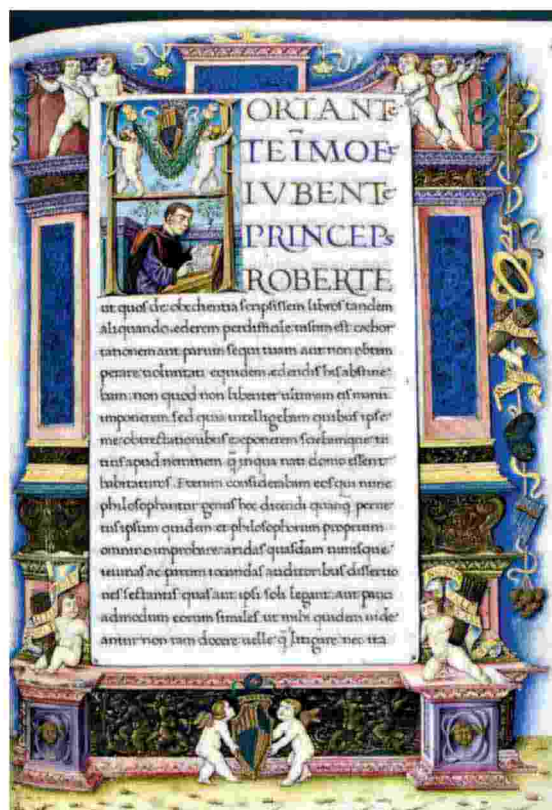 HORTANTe
TE ĪMOEt
IVBENTe
PRINCEPs
ROBERTE
ut quos de obedientia scripsissem libros tandem
aliquando ederem perdifficile uisum est cohor
tationem aut parum sequi tuam aut non obtem
perare uoluntati equidem ædendis his abstine
bam non quod non libenter ultimam eis manū
imponerem sed quia intelligebam quibus ipse
me obtrectationibus exponerem sciebamque tu
tius apud neminem q̄ in qua nati domo essent
habitaturos. Etenim considerabam eos qui nunc
philosophantur genus hoc dicendi quanq̄ peruetus
ipsum quidem et philosophorum proprium
omnino improbare: aridas quasdam nimisque
ieiunas ac parum iocundas auditoribus dissertio
nes sectantis quas aut ipsi soli legant: aut pauci
admodum eorum similes ut mihi quidem uide
antur non tam docere uelle q̄ litigare nec ita